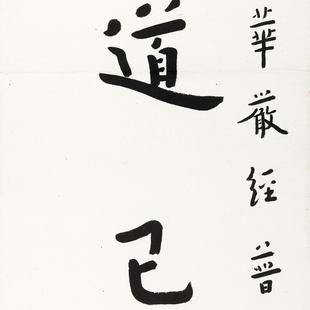 華嚴經普
道已